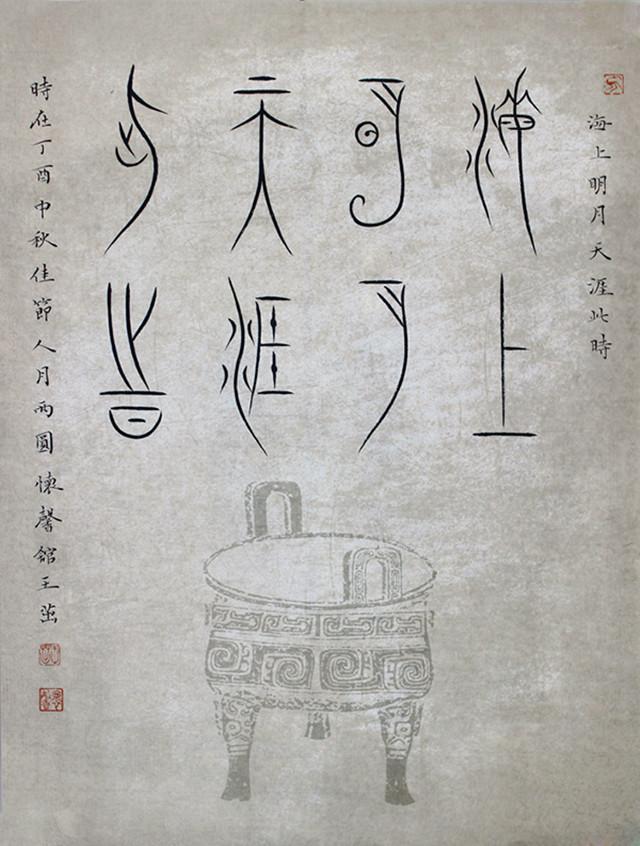 海上明月天涯此時
海上
明月
天涯
此時
時在丁酉中秋佳節人月兩圓懷馨舘王茁